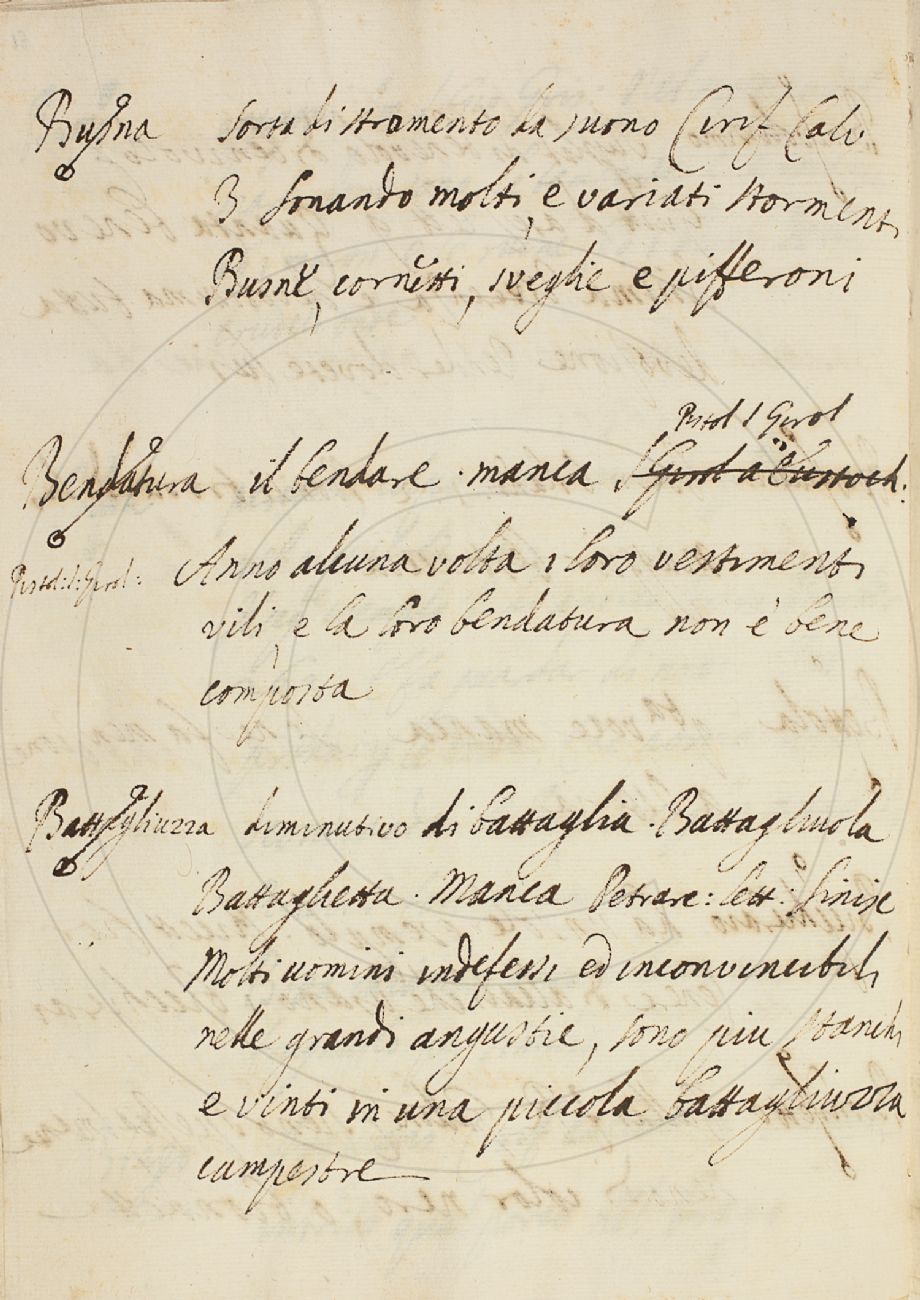 Busna sorta di stromento da suono Cirif Calv.
3 Sonando molti, e variati stormenti
Busne, cornetti, sveglie e pifferoni
Pistol S Girol
Bendatura il bendare. manca S Girol a Eustoch.
Pistol: S: Girol: Anno alcuna volta i loro vestimenti
vili, e la loro bendatura non è bene
composta
Battagliuzza diminutivo di battaglia. Battagliuola
Battaglietta. Manca Petrarc: lett:
Molti uomini indefessi ed inconvincibili
nelle grandi angustie, sono piu stanchi
e vinti in una piccola battagliuzza
campestre